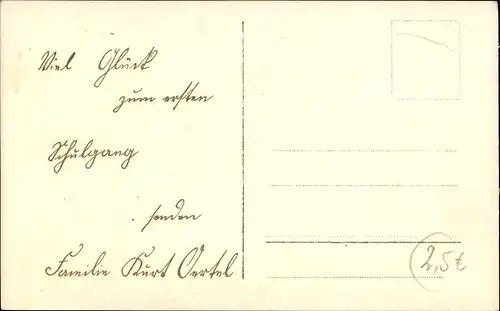 Viel Glück
zum ersten
Schulgang
senden
Familie Kurt Oertel
2,5€